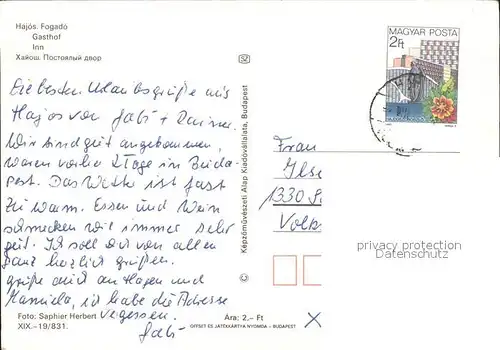 Hajós. Fogadó
Gasthof
Inn
Хайош. Постоялый двор
Die besten Urlaubsgrüße aus
Hajos von Gabi + Rainer.
Wir sind gut angekommen,
waren vorher 2 Tage in Buda-
pest. Das Wetter ist fast
zu warm. Essen und Wein
schmecken wie immer sehr
gut. Ich soll Dir von allen
ganz herzlich grüßen.
grüße auch an Hagen und
ich habe die Adresse
vergessen.
Gabi
Foto: Saphier Herbert
XIX.-19/831.
Ára: 2,- Ft
OFFSET ÉS JÁTÉKKÁRTYA NYOMDA - BUDAPEST
Képzőművészeti Alap Kiadóvállalata, Budapest
MAGYAR POSTA
2Ft
Frau
Ilse
1330
Volks
privacy protection
Datenschutz